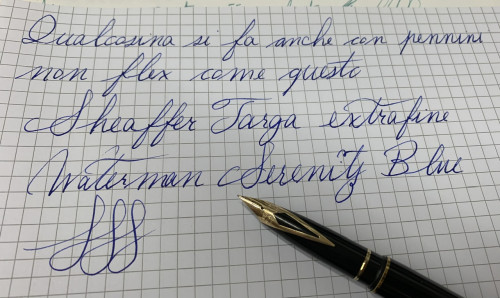 Qualcosina si fa anche con pennini
non flex come questo
Sheaffer Targa extrafine
Waterman Serenity Blue